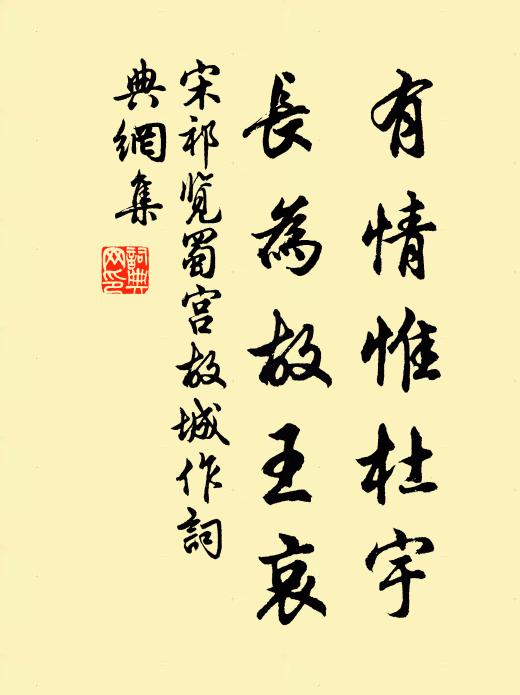 有情惟杜宇
長為故王哀
宋祁覽蜀宮故城作詞
典網集
詞典網印